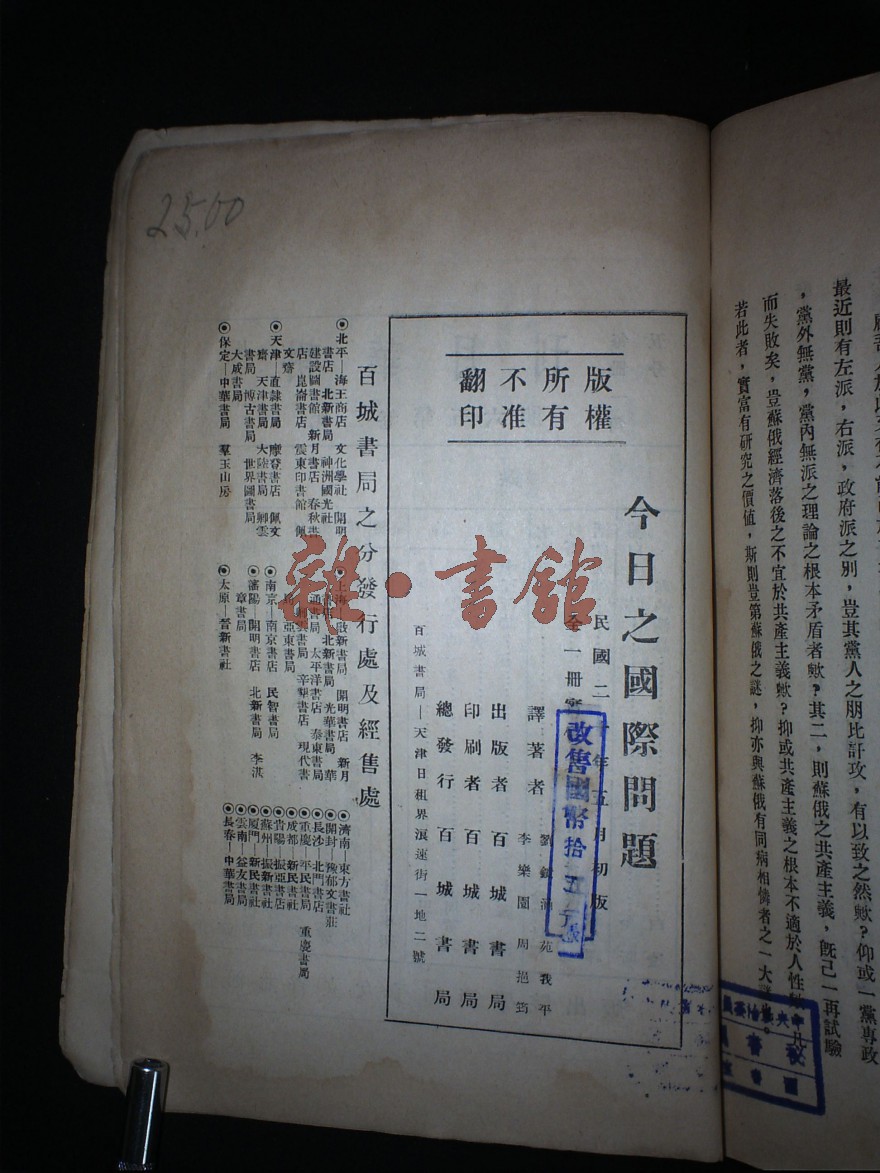 最近則有左派，右派，政府派之別，豈其黨人之朋比訐攻，有以致之然歟？仰或一黨專政
，黨外無黨，黨內無派之理論之根本矛盾者歟？其二，則蘇俄之共產主義，旣己一再試驗
而失敗矣，豈蘇俄經濟落後之不宜於共產主義歟？抑或共產主義之根本不適於人性歟？凡
若此者，實富有研究之價值，斯則豈第蘇俄之謎，抑亦與蘇俄有同病相憐者之一大謎也。
祕書
圖書
25.00
版權
所有
不准
翻印
今日之國際問題
民國二十年五月初版
全一册實
改售國幣拾五元
譯著者
苑我平
李樂園 周挹筠
出版者 百城書局
印刷者 百城書局
總發行 百城書局
百城書局—天津日租界浪速街一地二號
百城書局之分發行處及經售處
◉北平—海王商店 文化學社 開明
書店 北新書局 神洲國光社
建設圖書館 新月書店 春秋書
店 崑崙書店 震東印書館 佩
文齋
◉天津—直隸書局 摩登書店 佩文
齋 天津書局 大陸書局 鄉雲
書局 博古書局 世界圖書局
大成書局
◉保定—中華書局 羣玉山房
◉上海—啟新書局 開明書店 新月
書店 北新書局 光華書局 華
通書局 太平洋書店 泰東書局
辛墾書店 現代書
局 亞東書局
◉南京—南京書店 民智書局
◉瀋陽—開明書店 北新書局 李淇
章書局
◉太原—晉新書社
◉濟南—東方書社
◉開封—豫郁文書莊
◉長沙—北門書店
◉重慶—平民書局 重慶書局
◉成都—新民書社
◉貴陽—振亞書店
◉蘇州—振新書社
◉厦門—新民書社
◉雲南—益友書局
◉長春—中華書局
雜·書舘